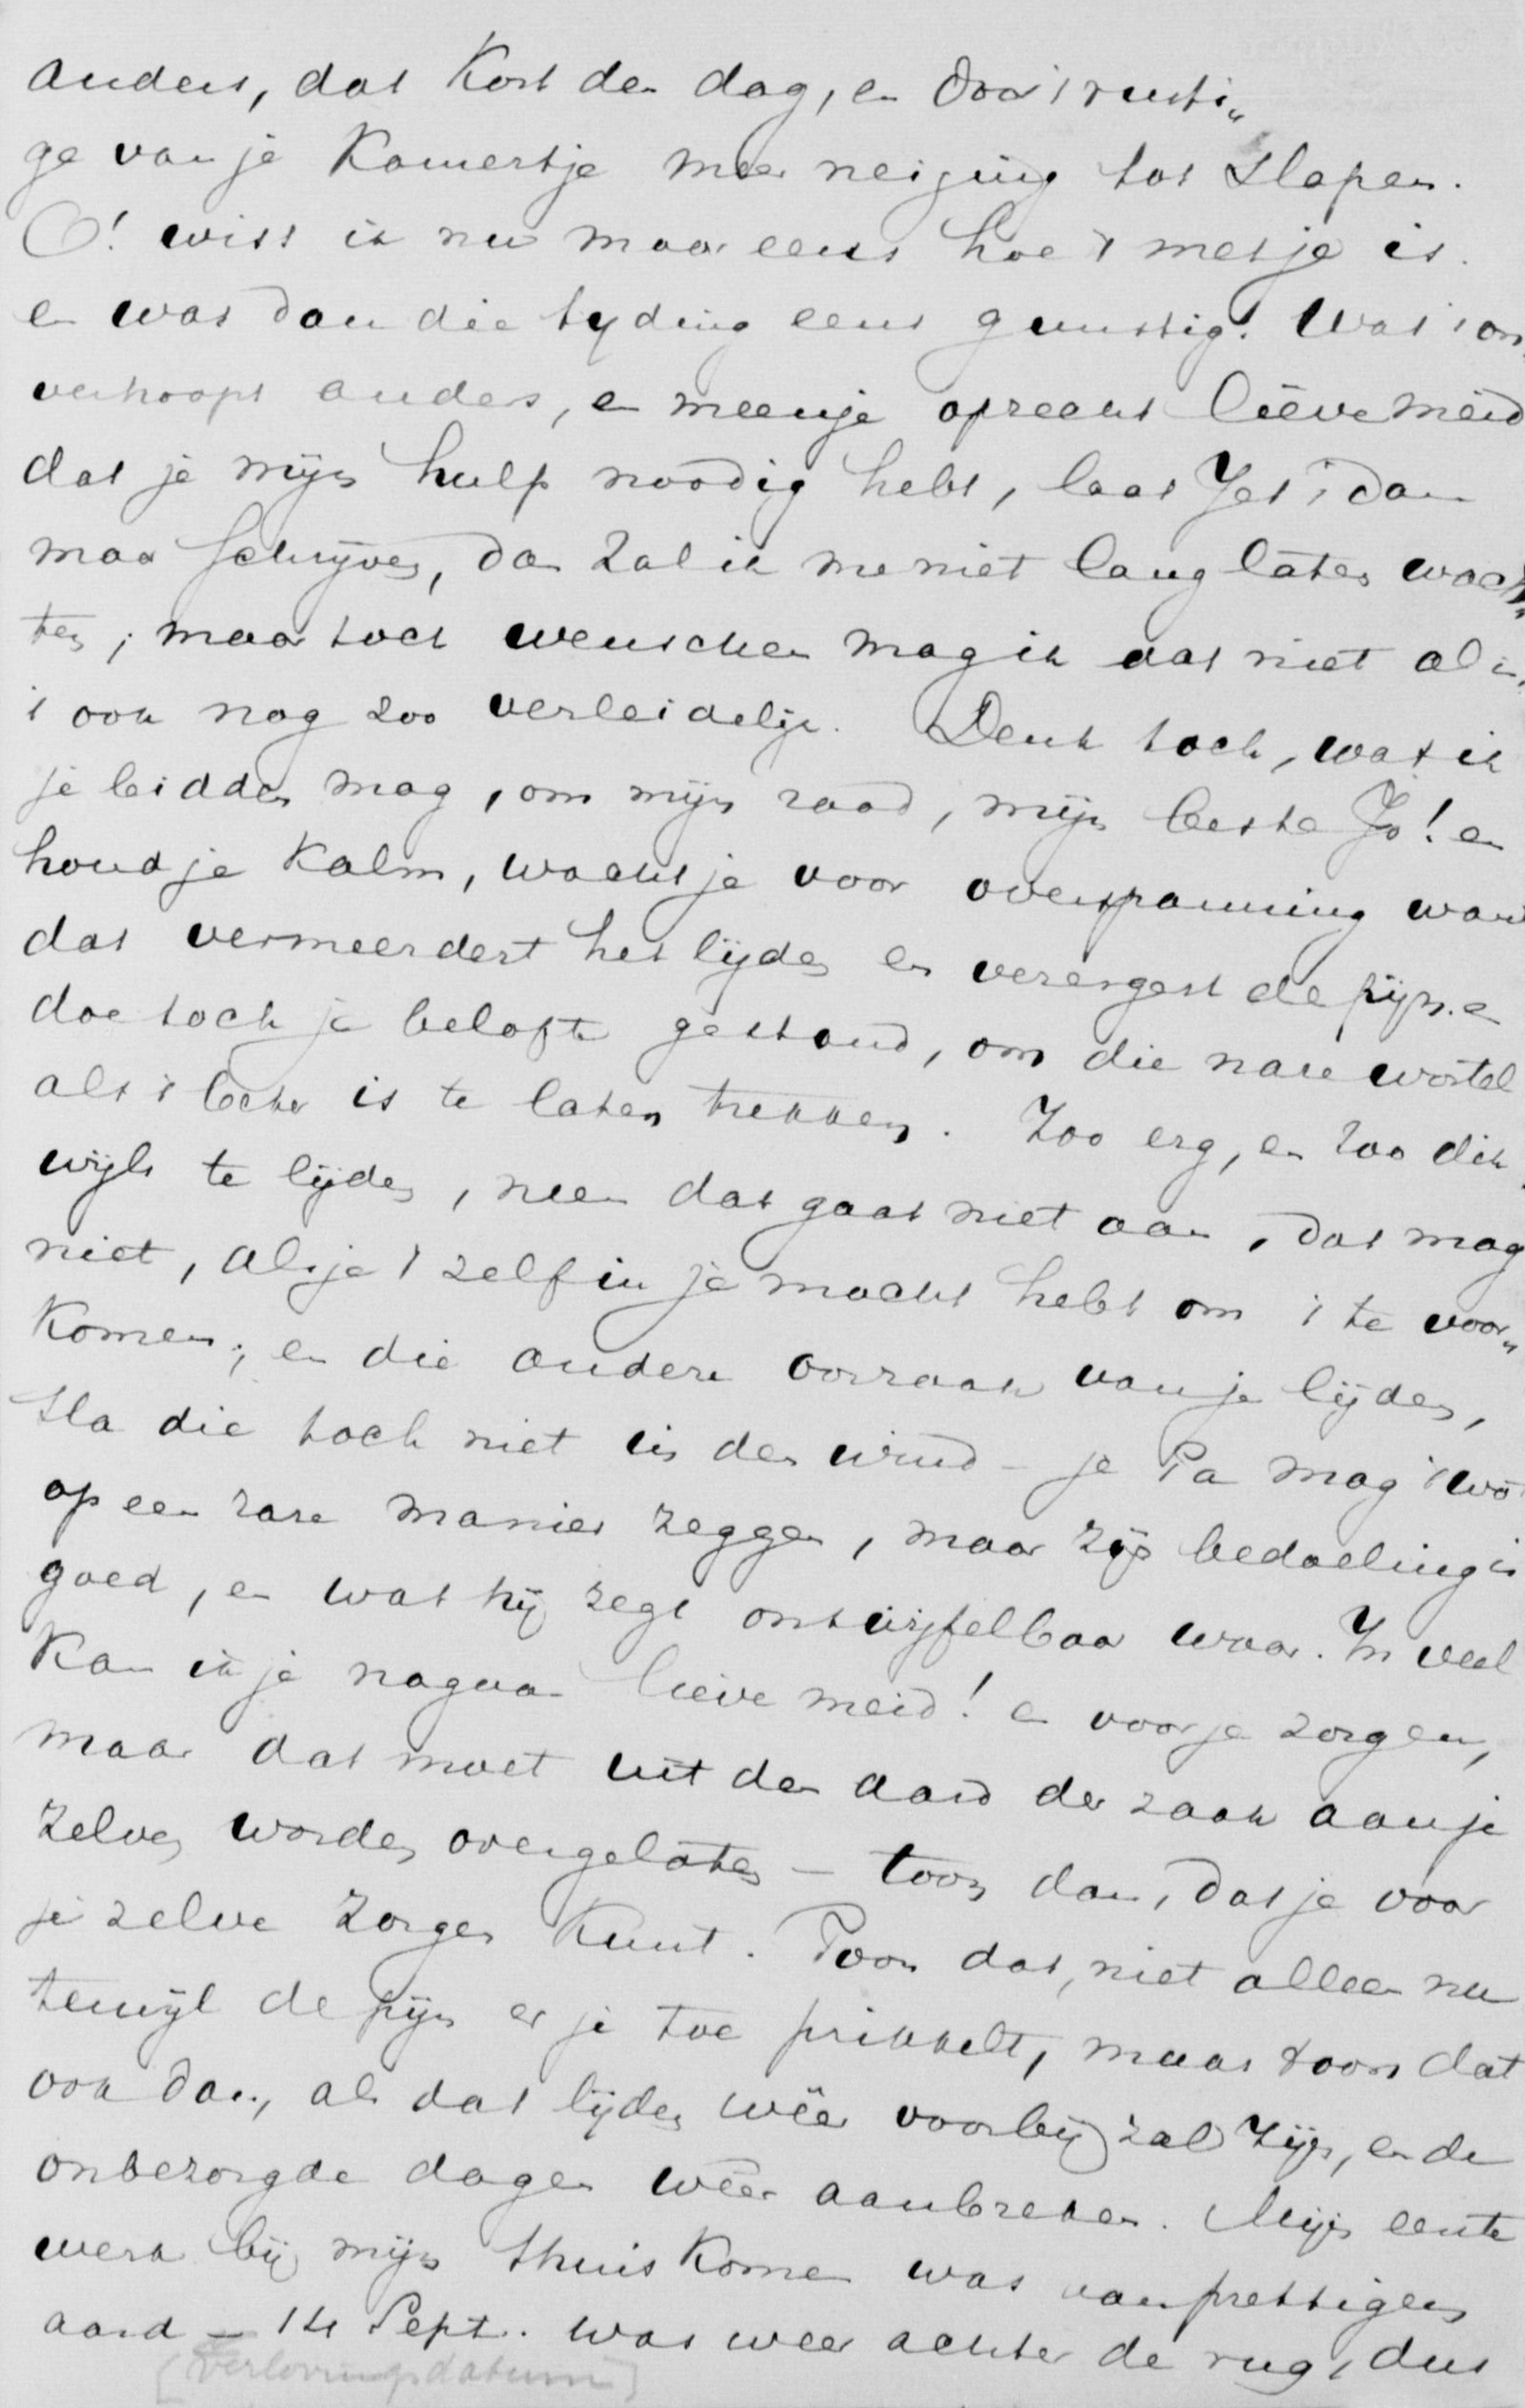 anders, dat kort den dag, en door 't rusti„
ge van je kamertje meer neiging tot slapen.
O! wist ik nu maar eens hoe 't met je is.
en was dan die tyding eens gunstig! Was 't on„
verhoopt anders, en meen je oprecht lieve meid
dat je mijn hulp noodig hebt, laat Jet 't dan
maar schrijven, dan zal ik me niet lang laten wach„
ten; maar toch wenschen mag ik dat niet al is
't ook nog zoo verleidelijk. Denk toch, wat ik
je bidden mag, om mijn raad, mijn beste Jo! en
houd je kalm, wacht je voor overspanning want
dat vermeerdert het lijden en verergert de pijn. en
doe toch je belofte gestand, om die nare wortel
als 't beter is te laten trekken. Zoo erg, en zoo dik„
wijls te lijden, neen dat gaat niet aan, dat mag
niet, als je 't zelf in je macht hebt om 't te voor„
komen; en die andere oorzaak van je lijden,
sla die toch niet in den wind – je Pa mag 't wat
op een rare manier zeggen, maar zijn bedoeling is
goed, en wat hij zegt ontwijfelbaar waar. In veel
kan ik je nagaan lieve meid! en voor je zorgen,
maar dat moet uit den aard der zaak aan je
zelven worden overgelaten – toon dan, dat je voor
je zelve zorgen kunt. Toon dat, niet alleen nu
terwijl de pijn er je toe prikkelt, maar toon dat
ook dan, als dat lijden wêer voorbij zal zijn, en de
onbezorgde dagen wêer aanbreken. Mijn eerste
werk bij mijn thuiskomen was van prettigen
aard – 14 Sept. was weer achter de rug, dus
[verlovingsdatum]